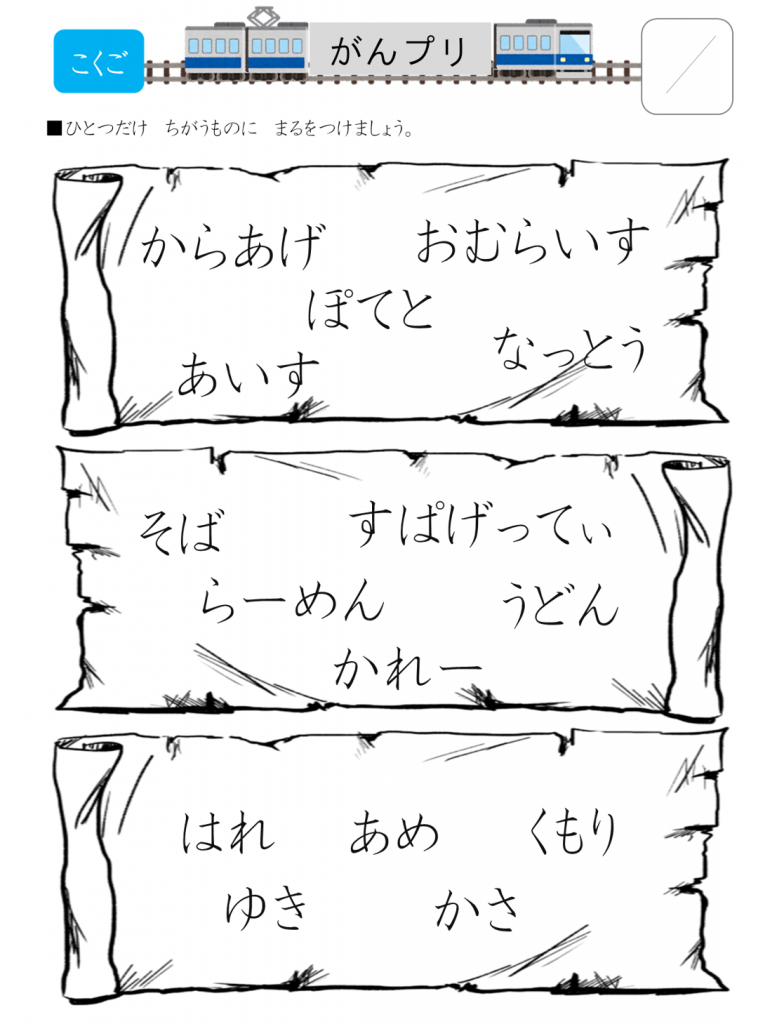 こくご
がんプリ
■ひとつだけ　ちがうものに　まるをつけましょう。
からあげ　おむらいす
ぽてと
あいす　なっとう
そば　すぱげってぃ
らーめん　うどん
かれー
はれ　あめ　くもり
ゆき　かさ